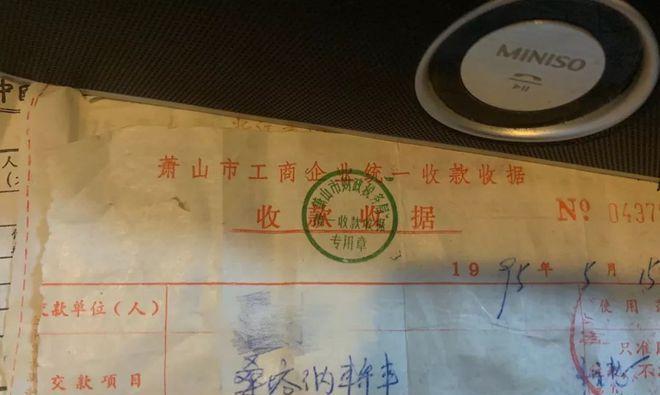 MINISO
萧山市工商企业统一收款收据
萧山市财政税务局
统一收款收据
专用章
收款收据
No 0437
1995年5月15
交款单位(人)
使用
只准
交款项目
桑塔纳轿车